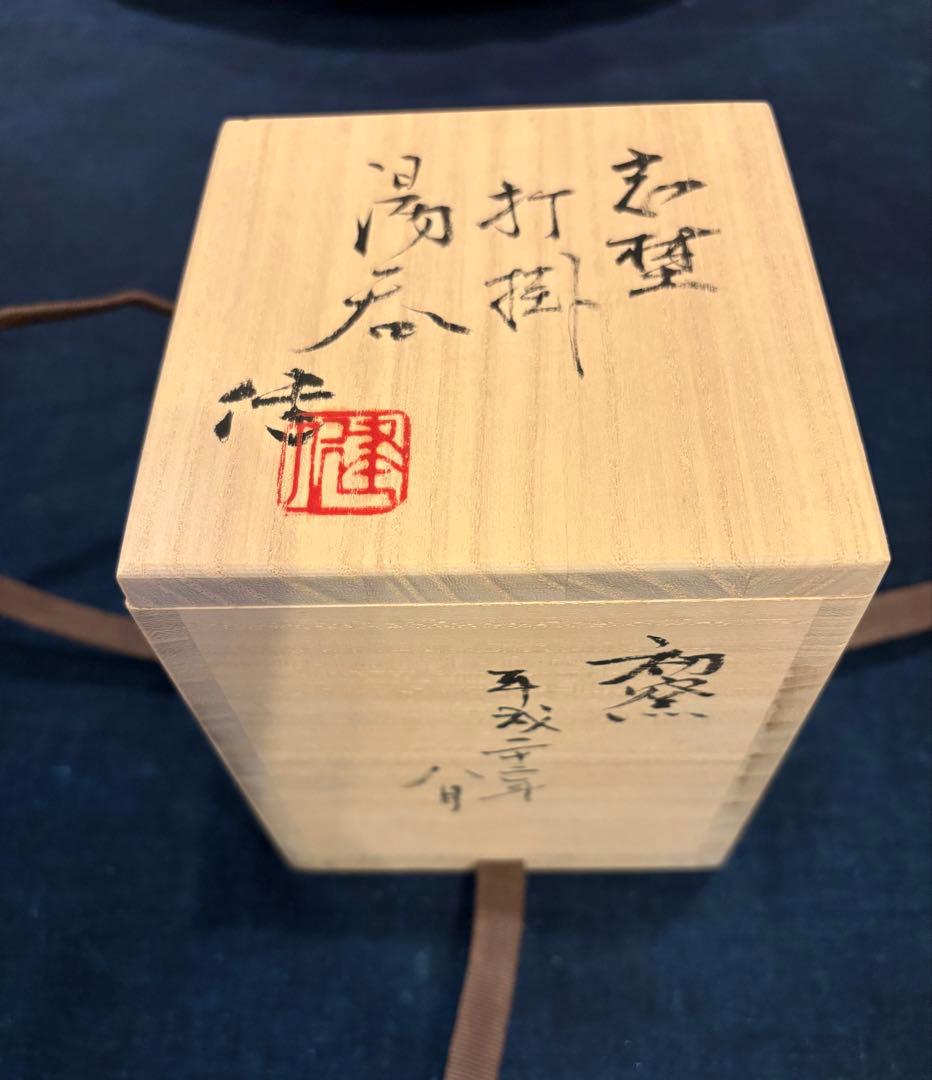 志埜
打掛
湯呑
健
初窯
平成二十二年
八月